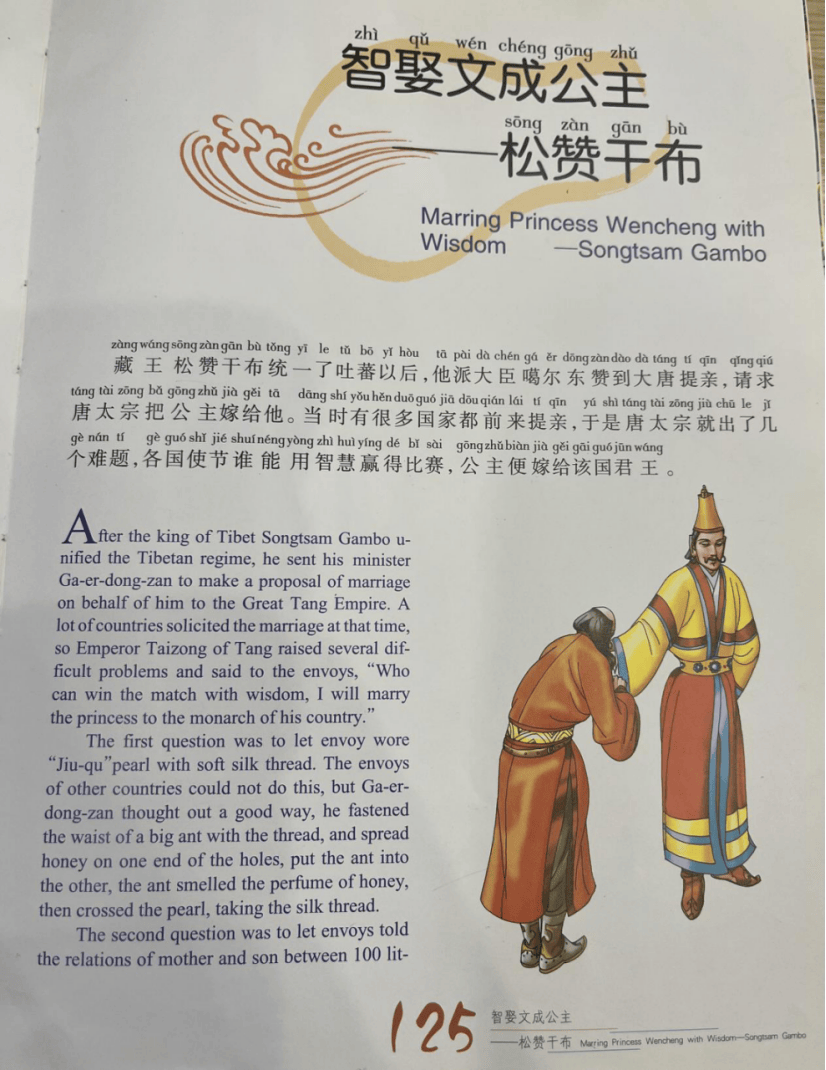 zhì qǔ wén chéng gōng zhǔ
智娶文成公主
sōng zàn gān bù
——松赞干布
Marring Princess Wencheng with
Wisdom —Songtsam Gambo
zàng wáng sōng zàn gān bù tǒng yī le tǔ bō yǐ hòu tā pài dà chén gá ěr dōng zàn dào dà táng tí qīn qǐng qiú
藏王松赞干布统一了吐蕃以后,他派大臣噶尔东赞到大唐提亲,请求
táng tài zōng bǎ gōng zhǔ jià gěi tā dāng shí yǒu hěn duō guó jiā dōu qián lái tí qīn yú shì táng tài zōng jiù chū le jǐ
唐太宗把公主嫁给他。当时有很多国家都前来提亲,于是唐太宗就出了几
gè nán tí gè guó shǐ jié shuí néng yòng zhì huì yíng dé bǐ sài gōng zhǔ biàn jià gěi gāi guó jūn wáng
个难题,各国使节谁能用智慧赢得比赛,公主便嫁给该国君王。
After the king of Tibet Songtsam Gambo u-
nified the Tibetan regime, he sent his minister
Ga-er-dong-zan to make a proposal of marriage
on behalf of him to the Great Tang Empire. A
lot of countries solicited the marriage at that time,
so Emperor Taizong of Tang raised several dif-
ficult problems and said to the envoys, “Who
can win the match with wisdom, I will marry
the princess to the monarch of his country.”
The first question was to let envoy wore
“Jiu-qu”pearl with soft silk thread. The envoys
of other countries could not do this, but Ga-er-
dong-zan thought out a good way, he fastened
the waist of a big ant with the thread, and spread
honey on one end of the holes, put the ant into
the other, the ant smelled the perfume of honey,
then crossed the pearl, taking the silk thread.
The second question was to let envoys told
the relations of mother and son between 100 lit-
125
智娶文成公主
——松赞干布 Marring Princess Wencheng with Wisdom—Songtsam Gambo